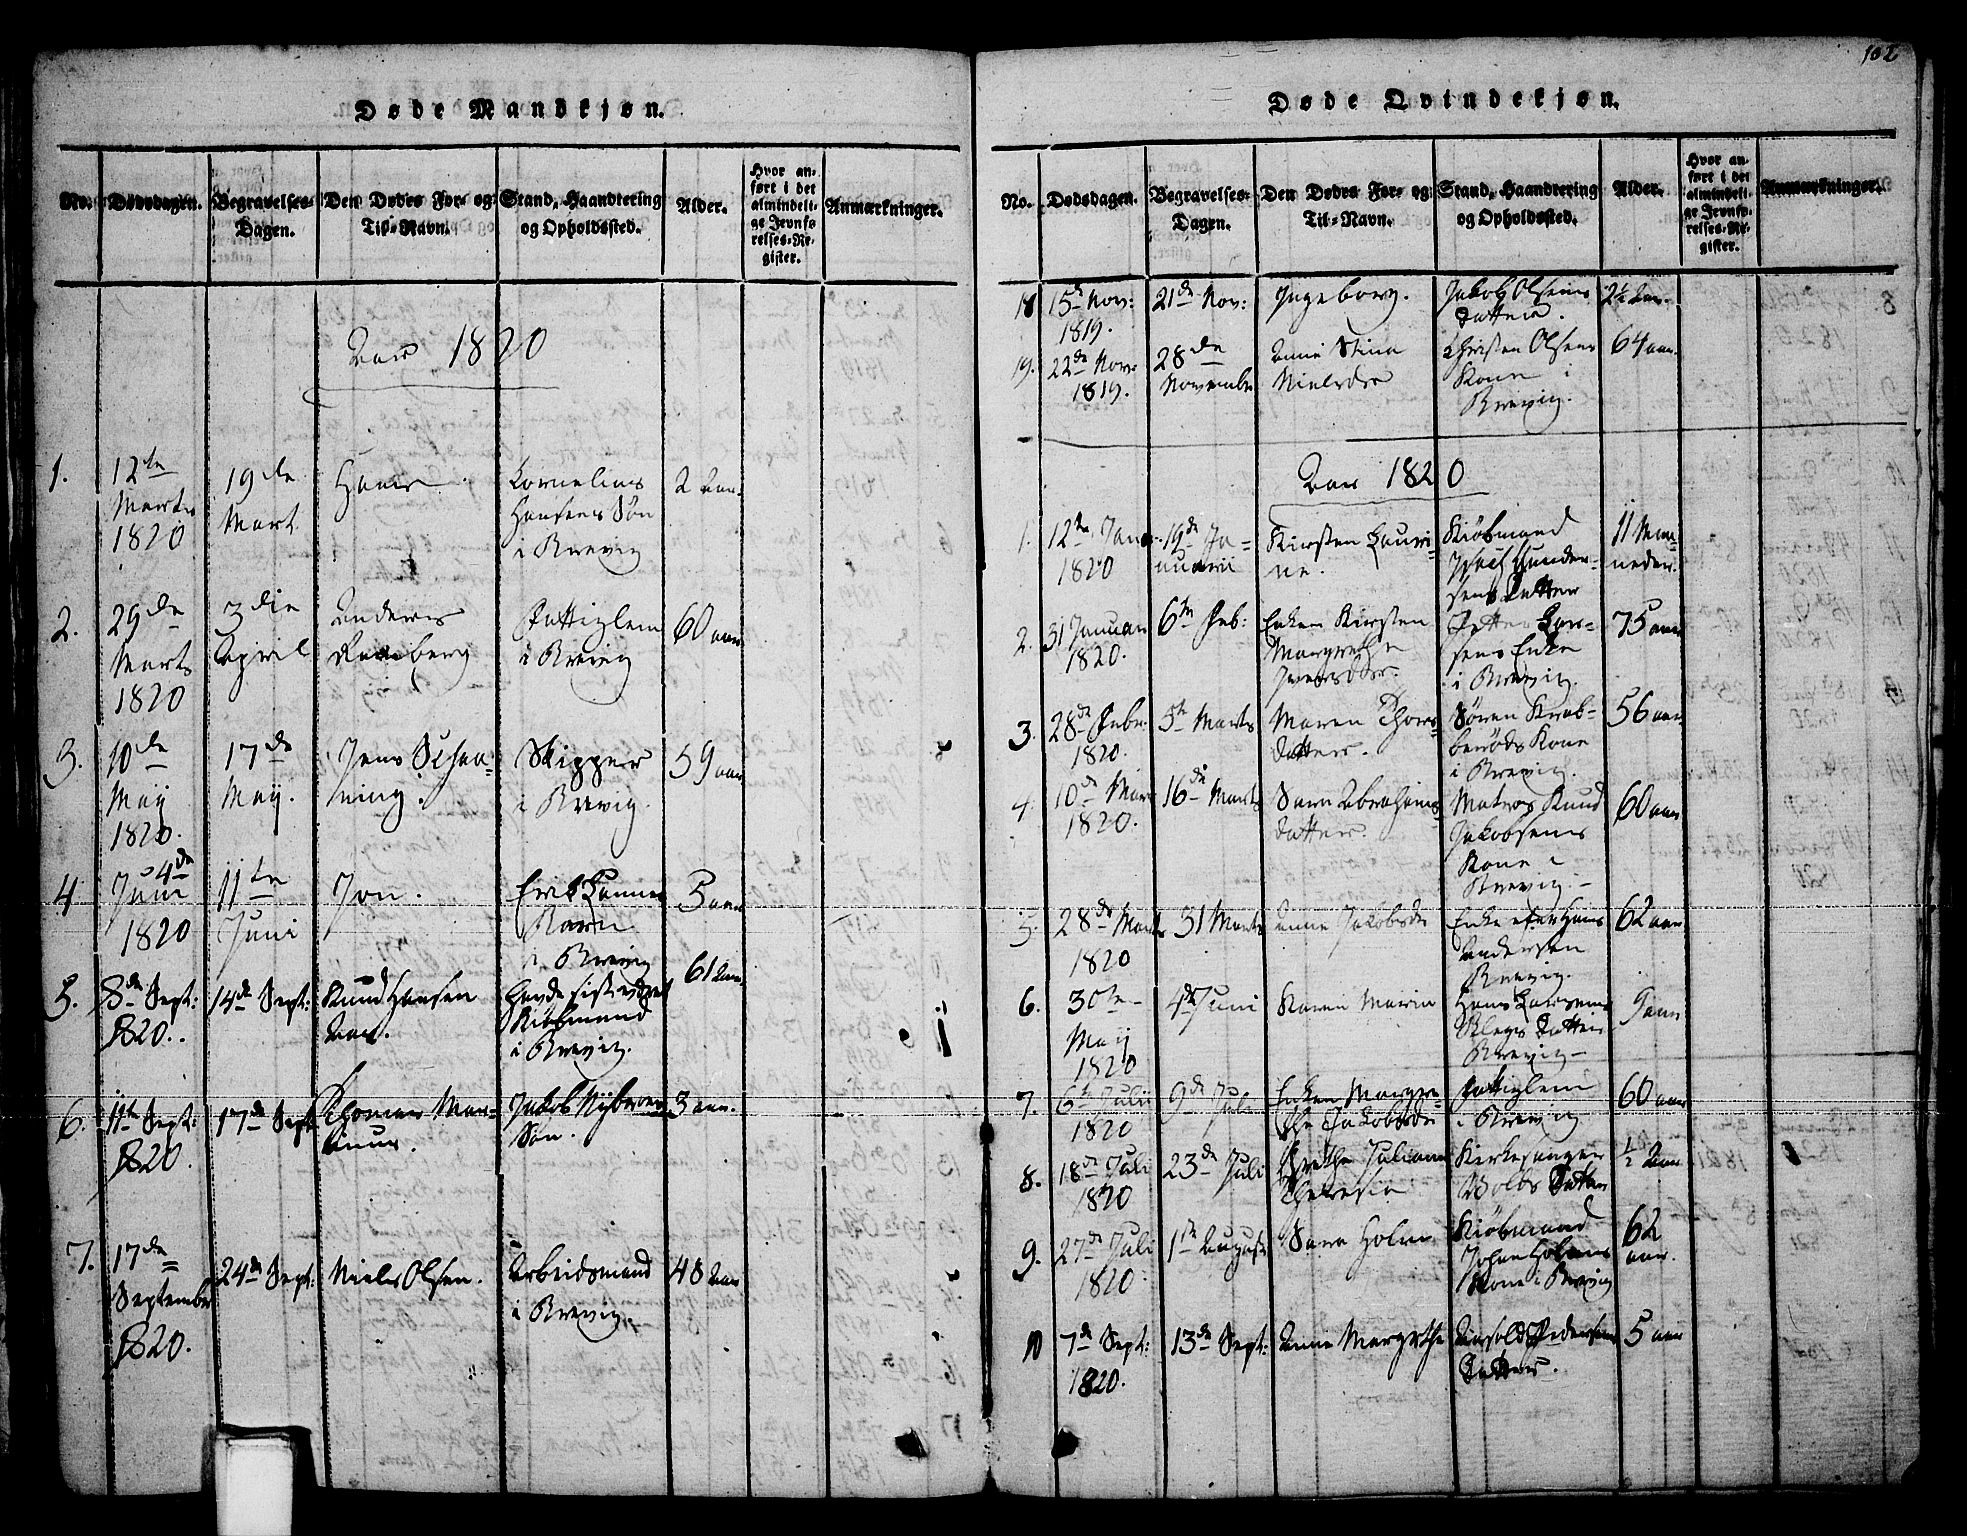 102
Døde Mandkjøn.
No.
Dødsdagen.
Begravelses-
Dagen.
Den Dødes For- og
Til-Navn.
Stand, Haandtering
og Opholdssted.
Alder.
Hvor an-
ført i det
almindeli-
ge Jevnfø-
relses-Re-
gister.
Anmærkninger.
Aar 1820
1.
12te
Marts
1820
19de
Mart.
Hans.
Cornelius
Hansens Søn
i Brevig
2 Aar.
2.
29de
Marts
1820
3die
April
Anders
Fattiglem
i Brevig
60 aar
3.
10de
Maij
1820.
17de
Maij.
Jens Schan-
ning.
Skipper
i Brevig.
59 aar
4
4de
Juni
1820
11te
Juni
Jon.
Erik
Barn
i Brevig
5 aar
5.
8de Sept:
1820.
14de Sept:
Knud Hansen
Aas.
Kiøbmand
i Brevig.
61 Aar
6.
11te Sept:
1820.
17de Sept
Thomas Mar-
tinus.
Jakob
Søn.
3 aar.
7.
17de
September
1820.
24de Sept:
Niels Olsen.
Arbeidsmand
i Brevig.
48 Aar
Døde Qvindekjøn.
No.
Dødsdagen.
Begravelses-
Dagen.
Den Dødes For- og
Til-Navn.
Stand, Haandtering
og Opholdssted.
Alder.
Hvor an-
ført i det
almindeli-
ge Jevnfø-
relses-Re-
gister.
Anmærkninger.
18
15de Nov:
1819.
21de Nov:
Ingeborg.
Jakob Olsens
Datter.
2½ Aar.
19.
22de Nov
1819.
28de
November
Anne Stina
Nielsdr
Christen Olsens
Kone i
Brevig.
64 aar.
Aar 1820
1.
12te Janu
1820
19de Ja-
nuarii
Kirsten Lauri-
ne.
Kiøbmand
Datter
11 Maa-
neder.
2.
31 Januar
1820.
6te Feb:
Enken Kirsten
Margrethe
Iversdtr.
Petter Lar-
sens Enke
i Brevig.
75 aar
3.
28de Febr.
1820.
5te Marts
Maren Thors-
datter.
Søren Krab-
berøds Kone
i Brevig.
56 aar
4.
10de Mar
1820.
16de Marts
Sara Abrahams-
datter.
Matros Knud
Jakobsens
Kone i
Brevig.-
60 aar
5.
28de Marts
1820
31 Marts
Anne Jakobsdr
Enke efter Hans
Andersen
Brevig.
62 aar
6.
30te-
Maij
1820
4de Juni
Karen Maria
Hans Larsens
Datter
Brevig-
9 aar
7.
6te Juli
1820
9de Juli
Enken Margre-
the Jakobsdr
Fattiglem
i Brevig
60 aar
8.
18de Juli
1820
23de Juli
Grethe Juliane
Theresia
Kirkesanger
Datter
½ Aar
9.
27de Juli
1820.
1ste August
Sara Holm
Kiøbmand
Johan Holms
Kone i Brevig
62
aar.
10
7de Sept:
1820.
13de Sept:
Anne Margrethe
Pedersens
Datter.
5 aar